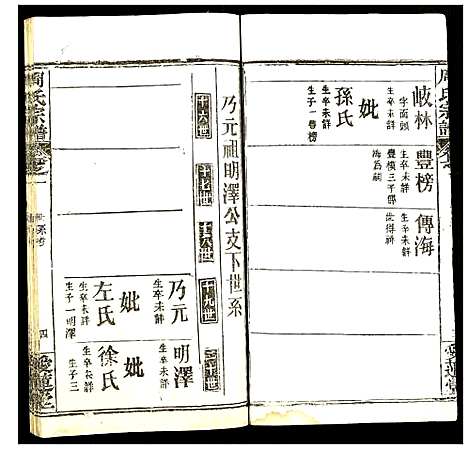 周氏宗譜
岐林
字面頭
生卒未詳
妣孫氏
生卒未詳
生子一豊榜
豐榜
生卒未詳
傳海
生卒未詳
愛蓮堂
乃元祖明澤公支下世系
十六世
十七世
十八世
十九世
二十世
乃元
生卒未詳
妣左氏
生卒未詳
生子一明澤
明澤
生卒未詳
妣徐氏
生卒未詳
生子三
周氏宗譜
世系考
四
愛蓮堂